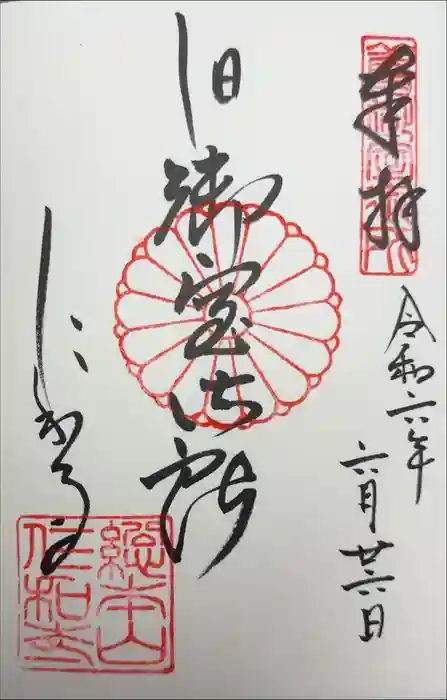 奉拝
令和六年
六月廿六日
旧御室御所
にわうじ
總本山
仁和寺